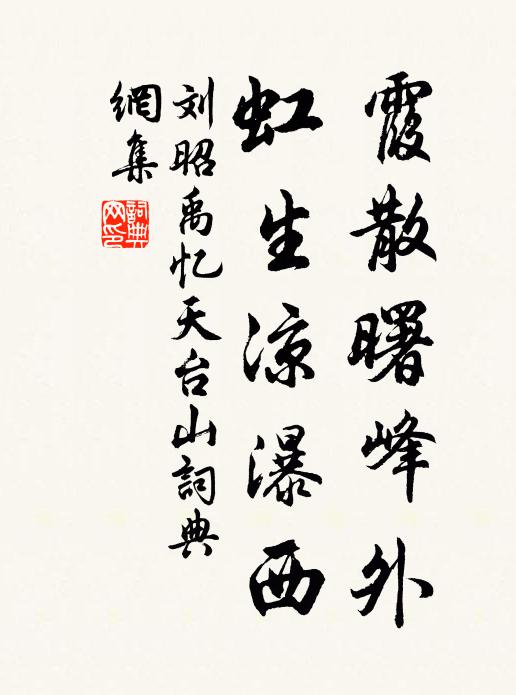 霞散曙峰外
虹生凉瀑西
刘昭禹忆天台山詞典
網集
詞典
网印